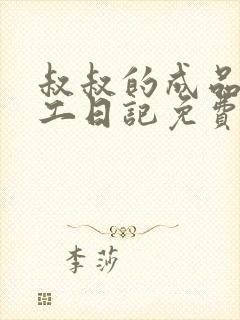 叔叔的成品
工日記免費
李莎